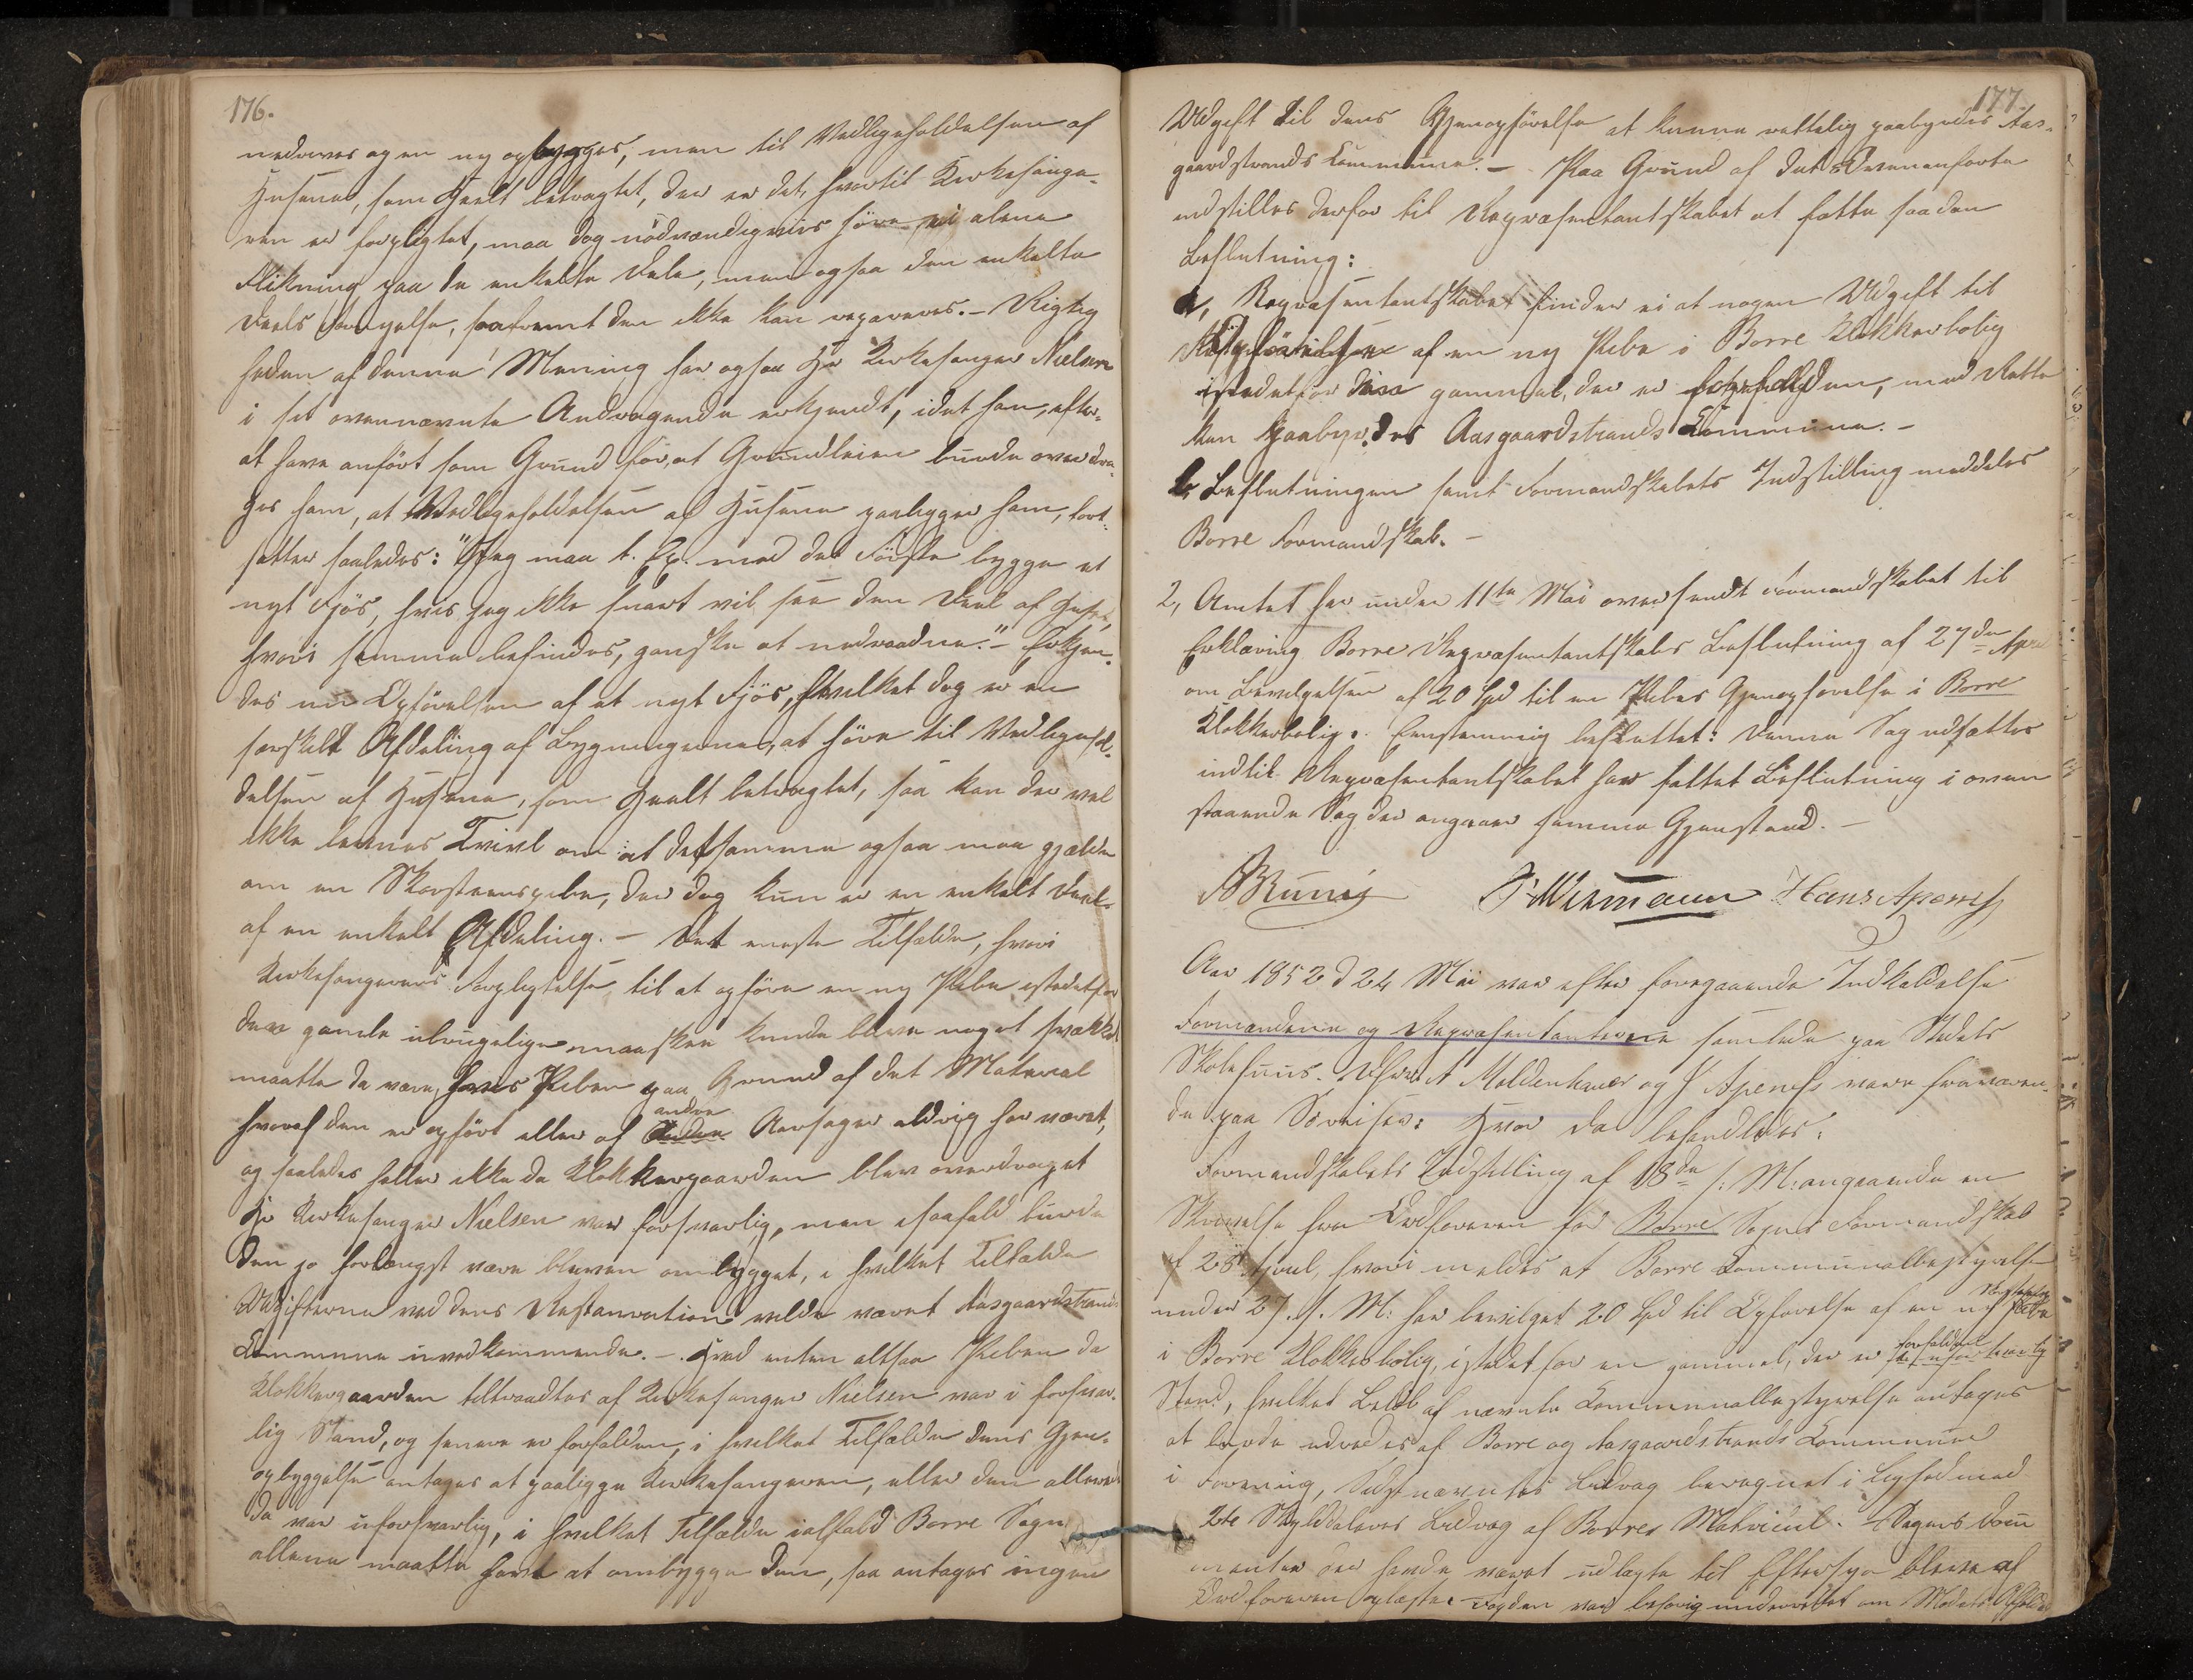 176.
nedrives og en ny opbygges, men til Vedligeholdelsen af
Husene, som Heelt betragtet, der er det, hvortil Kirkesange-
ren er forpligtet, maa dog nödvendigviis höre ei alene
Flikning paa de enkelte Dele, men ogsaa den enkelte
Deels Fornyelse, saafremt den ikke kan repareres. - Rigtig
heden af denne Mening har ogsaa Hr Kirkesanger Nielsen
i sit ovennævnte Andragende erkjendt, idet han, efter-
at have anfört som Grund for, at Grundleien burde overdra-
ges ham, at Vedligeholdelsen af Husene paaligger ham, fort-
sætter saaledes: "Jeg maa t. Ex. med det Förste bygge et
nyt Fjös, hvis jeg ikke snart vil see den Deel af Huset,
hvori samme befindes, ganske at nedraadne." - Erkjen-
des nu Opförelsen af et nyt Fjös, hvilket dog er en
særskilt Afdeling af Bygningerne, at höre til Vedligehol-
delsen af Husene, som Heelt betragtet, saa kan der vel
ikke levnes Tvivl om at detsamme ogsaa maa gjælde
om en Skorsteenspibe, der dog kun er en enkelt Deel
af en enkelt Afdeling. - Det eneste Tilfælde, hvori
Kirkesangerens Forpligtelse til at opföre en ny Pibe istedetfor
den gamle ubrugelige maaskee kunde blive noget svækket
maatte da være, hvis Piben paa Grund af det Material
hvoraf den er opfört eller af andre Aarsager aldrig har været,
og saaledes heller ikke da Klokkergaarden blev overdraget
Hr Kirkesanger Nielsen var forsvarlig, men isaafald burde
den jo forlængst være bleven ombygget, i hvilket Tilfælde
Udgifterne ved dens Restauration vilde været Aasgaardstrands
Commune uvedkommende. - Hvad enten altsaa Piben da
Klokkergaarden tiltraadtes af Kirkesanger Nielsen var i forsvar-
lig Stand, og senere er forfalden, i hvilket Tilfælde dens Gjen-
opbyggelse antages at paaligge Kirkesangeren, eller den allerede
da var uforsvarlig, i hvilket Tilfælde ialfald Borre Sogn
allene maatte have at ombygge den, saa antages ingen
177.
Udgift til dens Gjenopförelse at kunne rettelig paabyrdes Aas-
gaardstrands Commune. - Paa Grund af det Ovenanforte
indstilles derfor til Repræsentantskabet at fatte saadan
Beslutning:
a, Repræsentantskabet finder ei at nogen Udgift til
Opförelse af en ny Pibe i Borre Klokkerbolig
istedetfor den gammel, der er forfalden, med Rette
kan paabyrdes Aasgaardstrands Commune. -
b, Beslutningen samt Formandskabets Indstilling meddeles
Borre Formandskab. -
2, Amtet har under 11te Mai oversendt Formandskabet til
Erklæring Borre Repræsentantskabs Beslutning af 27de April
om Bevilgelsen af 20 Spd til en Pibes Gjenopforelse i Borre
Klokkerbolig. Eenstemmig besluttet: Denne Sag udsættes
indtil Repræsentantskabet har fattet Beslutning i oven
staaende Sag der angaaer samme Gjenstand. -
Hans Apenes
Aar 1852 d 24 Mai var efter foregaaende Indkaldelse
Formændene og Repræsentanterne samlede paa Stedets
Skolehuus. A Moldenhauer og J Apeness vare fraværen-
de paa Söreiser: Hvor da behandledes:
Formandskabets Indstilling af 18de s: M: angaaende en
Skrivelse fra Ordföreren for Borre Sogns Formandskab
af 28 April, hvori meldes at Borre Communalbestyrelse
under 27. s. M: har bevilget 20 Spd til Opforelse af en ny Pibe
i Borre Klokkerbolig, istedet for en gammel, der er forfalden
Stand, hvilket Beløb af nævnte Communalbestyrelse antages
at burde udredes af Borre og Aasgaardstrands Communer
i Forening, Sidstnævntes Bidrag beregnet i Lighed med
2de Skylddalers Bidrag af Borres Matricul. Sagens Docu
menter der havde været udlagte til Eftersyn bleve af
Ordföreren oplæste. Fogden var behörig underrettet om Mödets Afholdelse